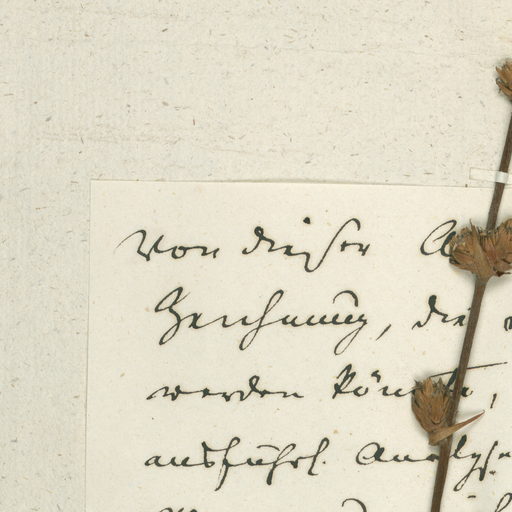 Von dieser A
Zeichnung, die
werden könnte,
ausführl. Analyse